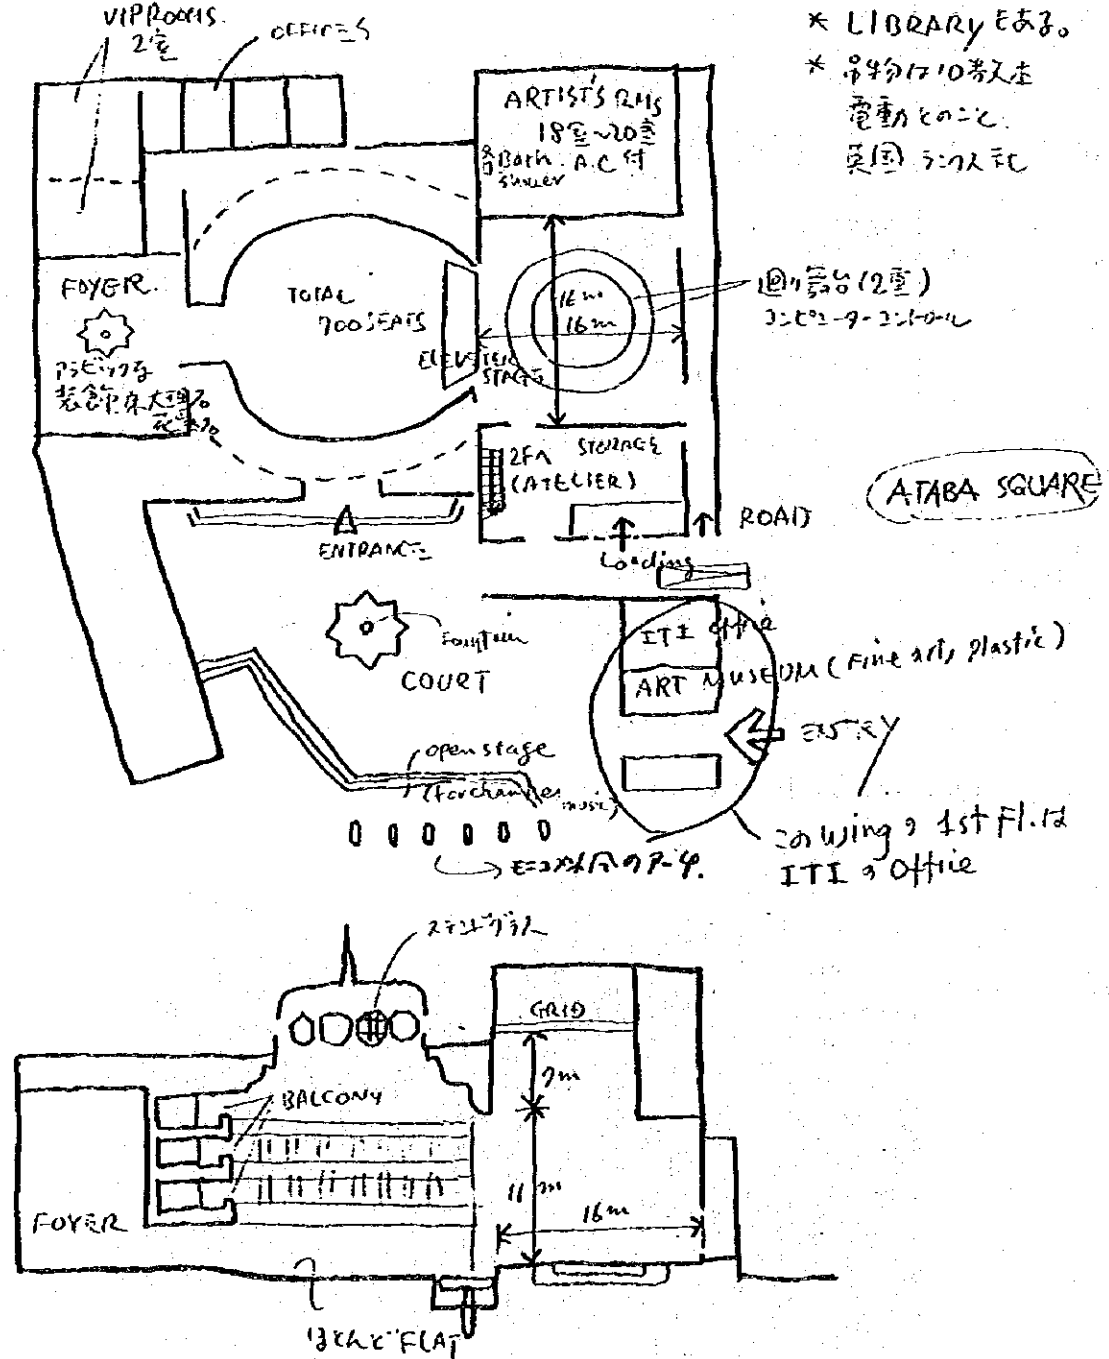 VIP ROOMS.
2室
OFFICES
* LIBRARYもある。
* 吊物は10数本
電動とのこと.
英国 ランク社
ARTIST'S RMS
18室~20室
各Bath. A.C付
shower
FOYER.
アラビックな
装飾 床大理石
TOTAL
700 SEATS
ELEVETER
STAGE
16m
16m
廻り舞台(2重)
コンピューターコントロール
STORAGE
2Fへ
(ATELIER)
ATABA SQUARE
ROAD
Loading
ENTRANCE
Fountain
COURT
ITI office
ART MUSEUM (Fine art, plastic)
ENTRY
open stage
(For chamber music)
このwingの1st Fl.は
ITIのOffice
ステンドグラス
GRID
7m
BALCONY
11m
16m
FOYER
ほとんどFLAT